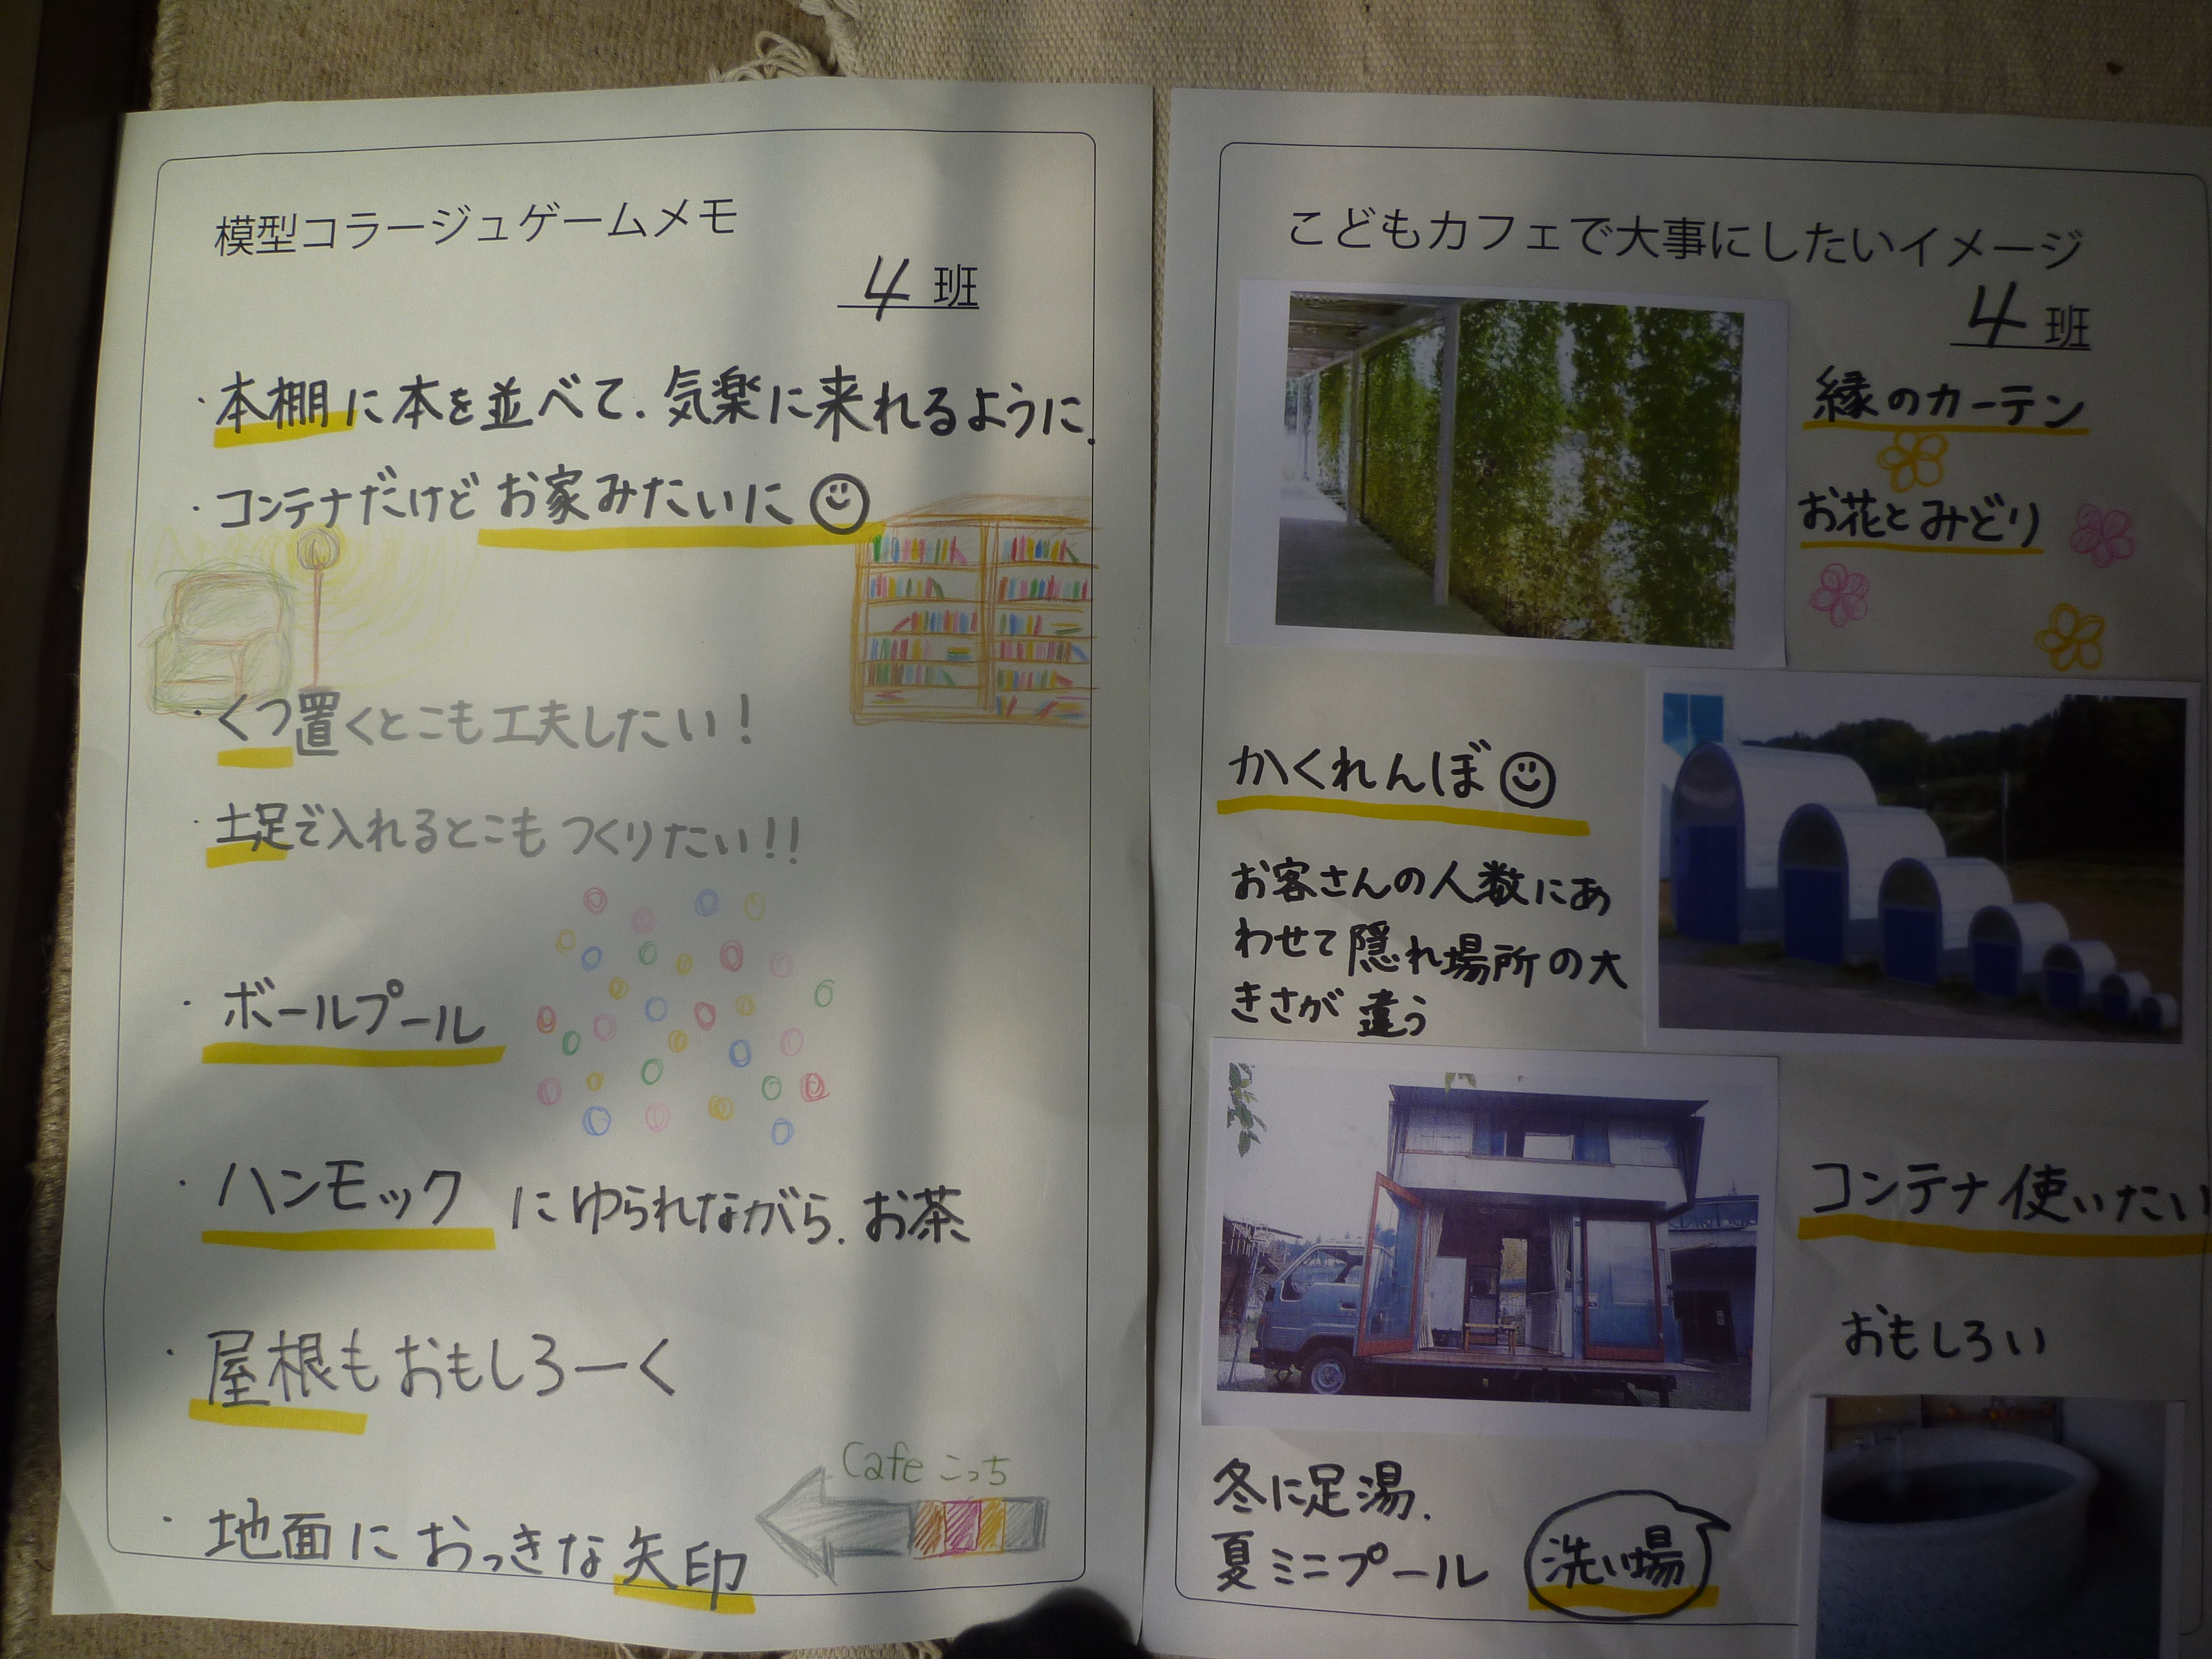 模型コラージュゲームメモ
4 班
・本棚に本を並べて、気楽に来れるように.
・コンテナだけど お家みたいに
・くつ置くとこも工夫したい!
・土足で入れるとこも つくりたい!!
・ボールプール
・ハンモック にゆられながら、お茶
・屋根もおもしろーく
Cafe こっち
・地面に おっきな矢印
こどもカフェで大事にしたいイメージ
4 班
緑のカーテン
お花とみどり
かくれんぼ
お客さんの人数にあ
わせて隠れ場所の大
きさが 違う
コンテナ使いたい
おもしろい
冬に足湯、
夏ミニプール
洗い場